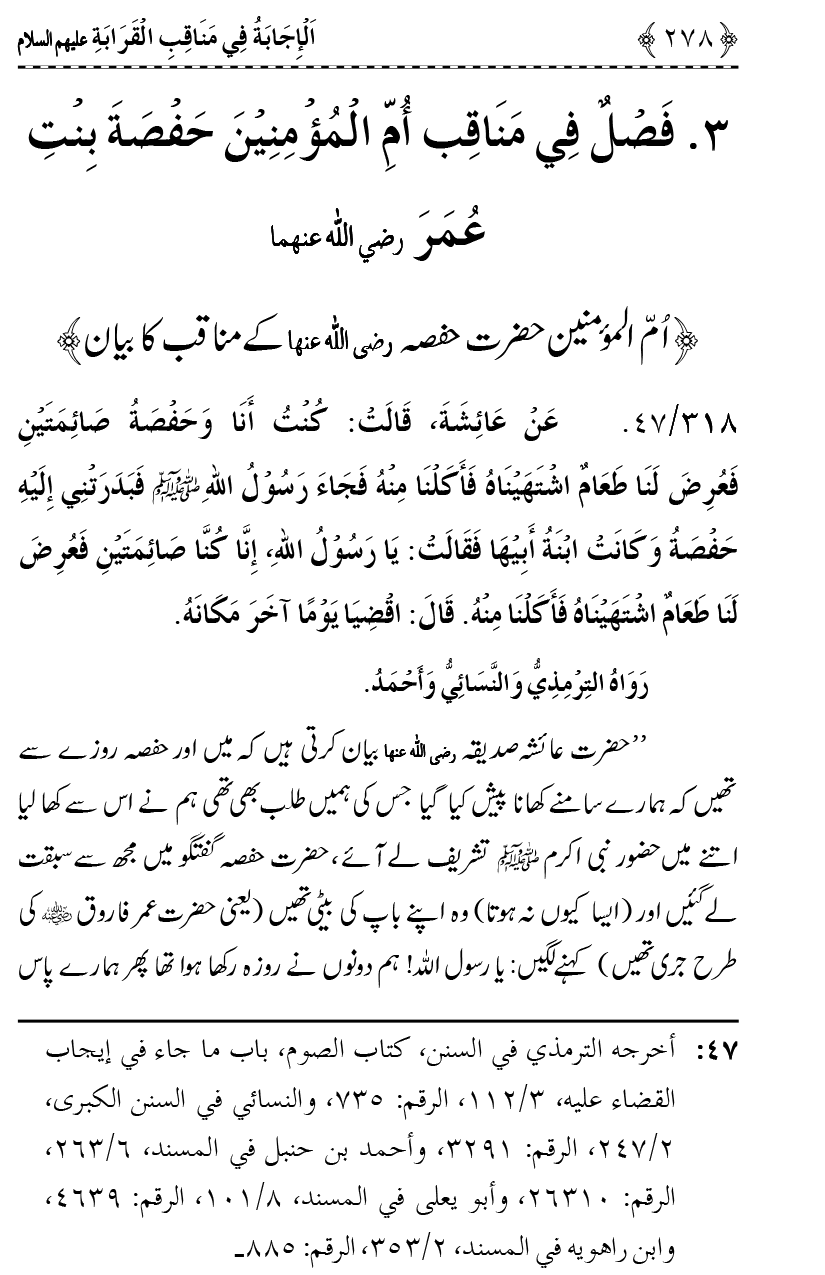 ﴿٢٧٨﴾ اَلْإِجَابَةُ فِي مَنَاقِبِ الْقَرَابَةِ عليهم السلام
٣. فَصْلٌ فِي مَنَاقِب أُمِّ الْمُؤْمِنِيْنَ حَفْصَةَ بِنْتِ
عُمَرَ رضي الله عنهما
﴿اُمّ المؤمنین حضرت حفصہ رضی الله عنها کے مناقب کا بیان﴾
٤٧/٣١٨. عَنْ عَائِشَةَ، قَالَتْ: كُنْتُ أَنَا وَحَفْصَةُ صَائِمَتَيْنِ
فَعُرِضَ لَنَا طَعَامٌ اشْتَهَيْنَاهُ فَأَكَلْنَا مِنْهُ فَجَاءَ رَسُوْلُ اللهِ ﷺ فَبَدَرَتْنِي إِلَيْهِ
حَفْصَةُ وَكَانَتْ ابْنَةُ أَبِيْهَا فَقَالَتْ: يَا رَسُوْلُ اللهِ، إِنَّا كُنَّا صَائِمَتَيْنِ فَعُرِضَ
لَنَا طَعَامٌ اشْتَهَيْنَاهُ فَأَكَلْنَا مِنْهُ. قَالَ: اقْضِيَا يَوْمًا آخَرَ مَكَانَهُ.
رَوَاهُ التِرْمِذِيُّ وَالنَّسَائِيُّ وَأَحْمَدُ.
’’حضرت عائشہ صدیقہ رضی الله عنها بیان کرتی ہیں کہ میں اور حفصہ روزے سے
تھیں کہ ہمارے سامنے کھانا پیش کیا گیا جس کی ہمیں طلب بھی تھی ہم نے اس سے کھا لیا
اتنے میں حضور نبی اکرم ﷺ تشریف لے آئے، حضرت حفصہ گفتگو میں مجھ سے سبقت
لے گئیں اور (ایسا کیوں نہ ہوتا) وہ اپنے باپ کی بیٹی تھیں (یعنی حضرت عمر فاروق رضی اللہ عنہ کی
طرح جری تھیں) کہنے لگیں: یا رسول اللہ! ہم دونوں نے روزہ رکھا ہوا تھا پھر ہمارے پاس
٤٧: أخرجه الترمذي في السنن، كتاب الصوم، باب ما جاء في إيجاب
القضاء عليه، ٣/١١٢، الرقم: ٧٣٥، والنسائي في السنن الكبرى،
٢/٢٤٧، الرقم: ٣٢٩١، وأحمد بن حنبل في المسند، ٦/٢٦٣،
الرقم: ٢٦٣١٠، وأبو يعلى في المسند، ٨/١٠١، الرقم: ٤٦٣٩،
وابن راهويه في المسند، ٢/٣٥٣، الرقم: ٨٨٥۔